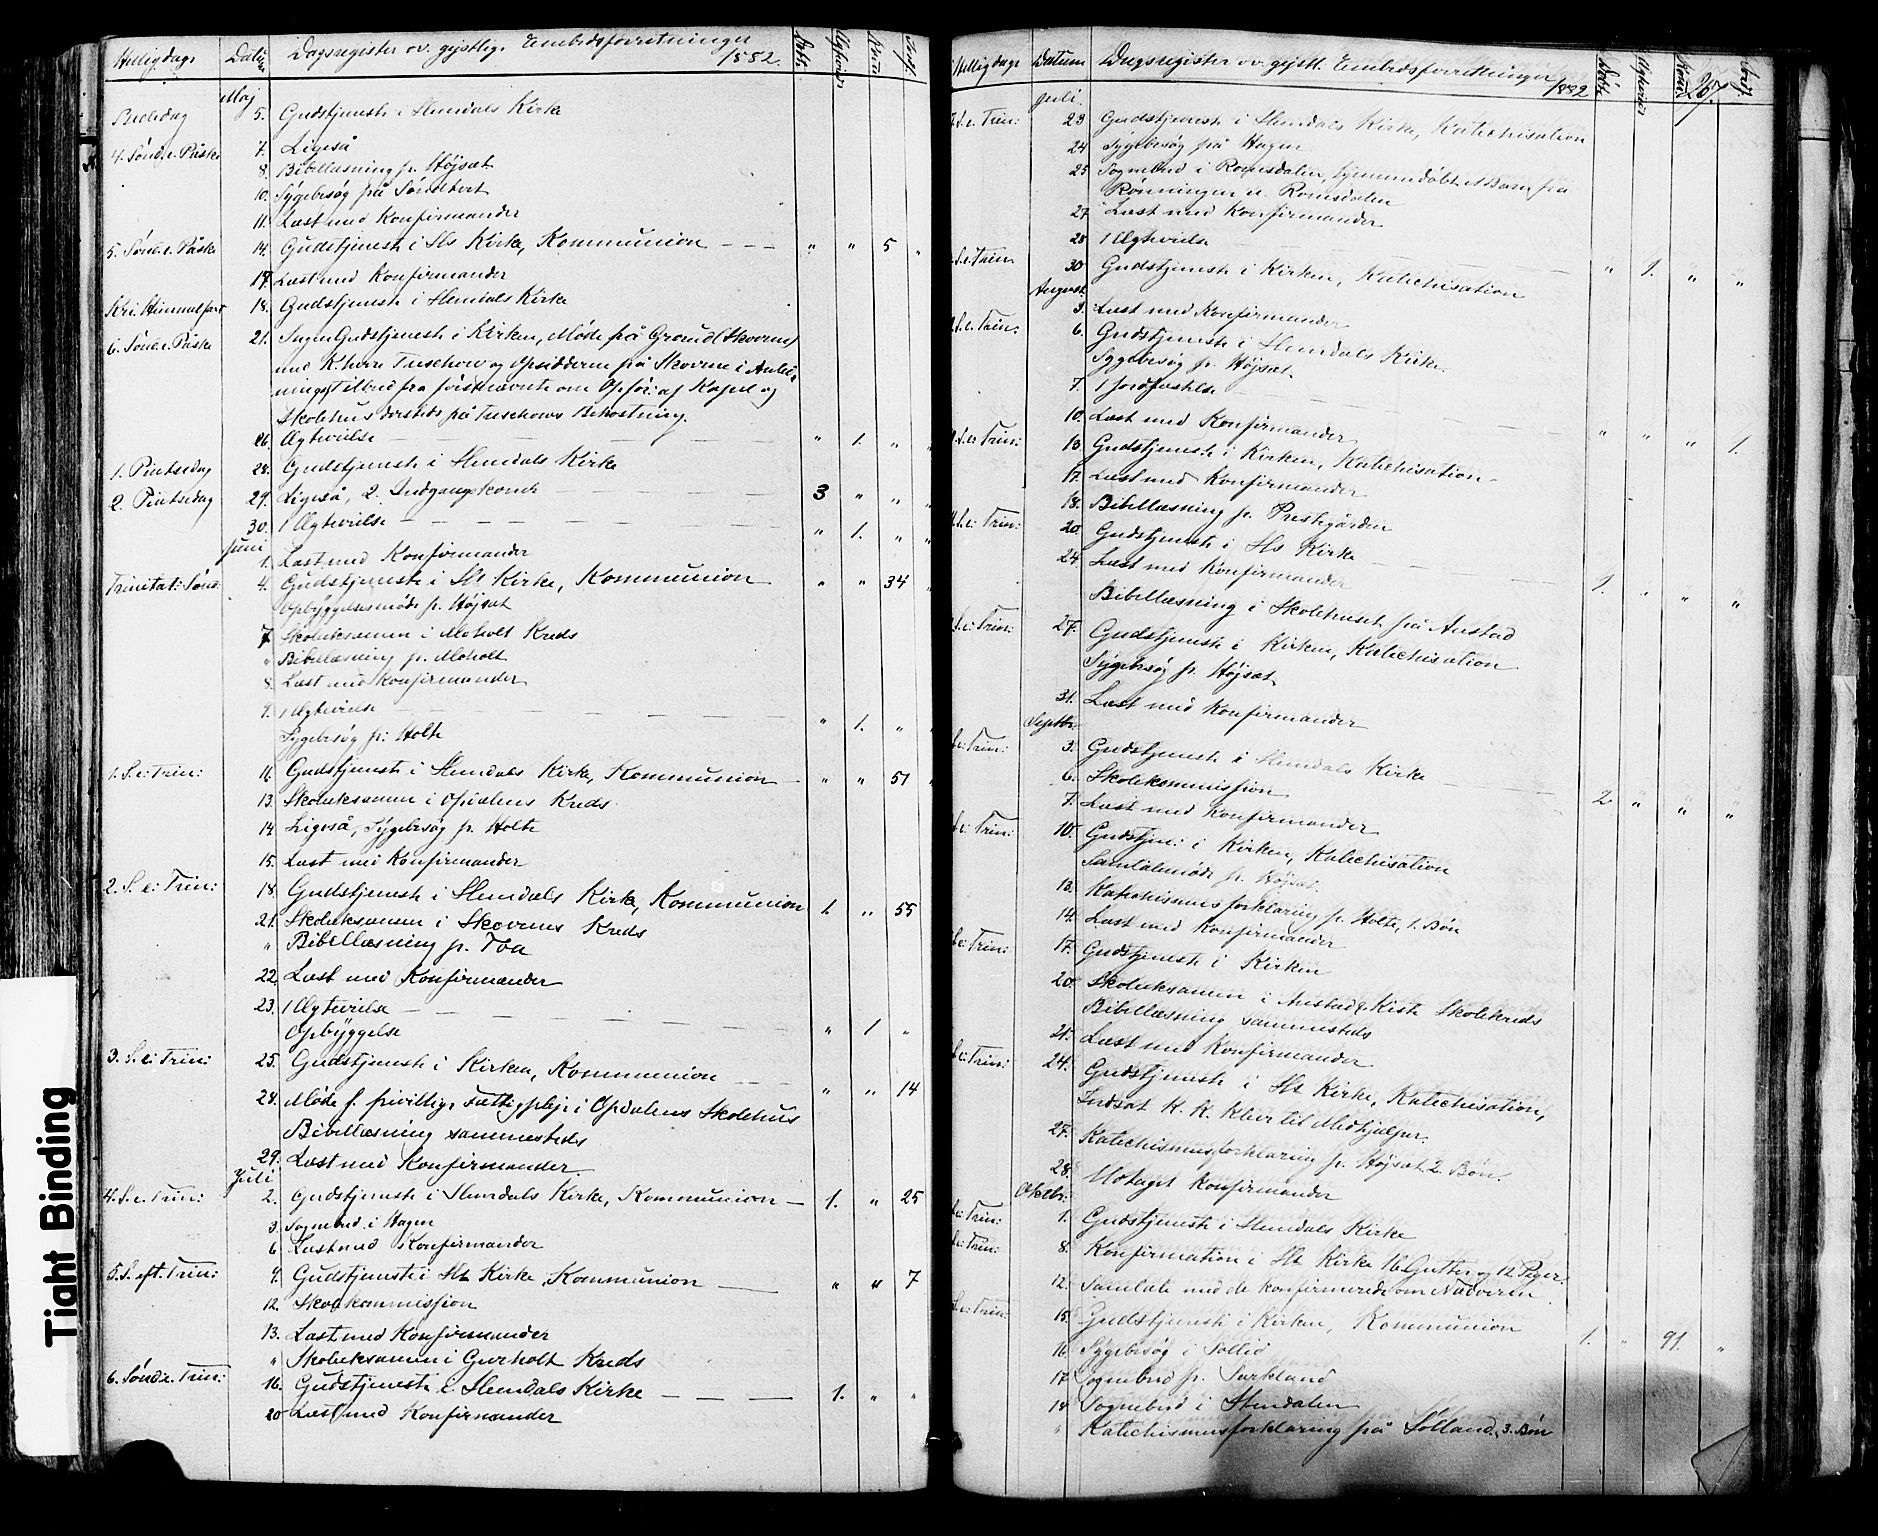 Helligdag. Datum Dagsregister ov. gejstlige Embedsforretninger 1882. Døbte Ægtevied Konf. Jordf.
Maj
Bededag 5. Gudstjeneste i Slemdals Kirke
4. Sønd. e. Påske 7. Ligeså
8. Bibellæsning p. Højsæt
10. Sygebesøg på
11. Læst med Konfirmander
5. Sønd. e. Påske 14. Gudstjeneste i Sls Kirke, Kommunion — — — " " 5 "
17. Læst med Konfirmander
Kri. Himmelfart 18. Gudstjeneste i Slemdals Kirke
6. Sønd. e. Påske 21. Ingen Gudstjeneste i Kirken, Møde på Grorud (Skovene)
med K.herre Treschow og Opsidderne på Skovene i Anled-
ning Tilbud fra førstnævnte om Opfør: af Kapel og
Skolehus dersteds på Treschows Bekostning.
26. Ægtevielse — — — " 1. " "
1. Pintsedag 28. Gudstjeneste i Slemdals Kirke
2. Pintsedag 29. Ligeså, 2. Indgangskoner — — — 3 " " "
30. 1 Ægtevielse — — — " 1. " "
Juni
1. Læst med Konfirmander
Trinitat: Sønd. 4. Gudstjeneste i Sls Kirke, Kommunion " " 34 "
Opbyggelsesmøde p. Højsæt
7. Skoleeksamen i Moholt Kreds
" Bibellæsning p. Moholt
8. Læst med Konfirmander
9. 1 Ægtevielse — — — " 1. " "
Sygebesøg p: Holte
1. S. e: Trin: 11. Gudstjeneste i Slemdals Kirke, Kommunion — " " 51 "
13. Skoleeksamen i Opdalens Kreds.
14. Ligeså, Sygebesøg p. Holte
15. Læst med Konfirmander
2. S. e: Trin: 18. Gudstjeneste i Slemdals Kirke, Kommunion 1 " 55
21. Skoleeksamen i Skovenes Kreds
" Bibellæsning p. Tva
22. Læst med Konfirmander
23. 1 Ægtevielse — — — " 1 "
Opbyggelse
3. S. e: Trin: 25. Gudstjeneste i Kirken, Kommunion — — " " 14
28. Møde f. frivillig. Fattigpleje i Opdalens Skolehus
Bibellæsning sammesteds
29. Læst med Konfirmander.
Juli
4. S. e. Trin: 2. Gudstjeneste i Slemdals Kirke, Kommunion — 1. " 25
3. Sognebud i Hagen
6. Læst med Konfirmander
5. S. eft. Trin: 9. Gudstjeneste i Sls Kirke, Kommunion — " " 7
12. Skolekommission
13. Læst med Konfirmander
" Skoleeksamen i Gurholt Kreds
6. Sønd. e. Trin: 16. Gudstjeneste i Slemdals Kirke — — — 1. " "
20. Læst med Konfirmander
Helligdags Datum Dagsregister ov. gejstl. Embedsforretninger 1882 Døbte Ægtevied Konf. Jordf.
267.
Juli.
7. S. e. Trin: 23 Gudstjeneste i Slemdals Kirke, Katechisation
24 Sygebesøg på Hagen
25 Sognebud i Romsdalen, hjemmedøbt et Barn fra
Rønningen u. Romsdalen
27 Læst med Konfirmander
28 1 Ægtevielse — " 1. " "
S. e. Trin 30 Gudstjeneste i Kirken, Katechisation
August.
3. Læst med Konfirmander
S. e. Trin: 6. Gudstjeneste i Slemdals Kirke.
Sygebesøg p. Højsæt.
7. 1 Jordfæstelse — " " " 1.
10. Læst med Konfirmander
S. e. Trin: 13. Gudstjeneste i Kirken, Katechisation
17. Læst med Konfirmander
18. Bibellæsning p. Prestegården
S. e: Trin: 20. Gudstjeneste i Sls Kirke — — — 1. " " "
24. Læst med Konfirmander
Bibellæsning i Skolehuset på Austad
S. e: Trin: 27. Gudstjeneste i Kirken, Katechisation
Sygebesøg p. Højsæt
31. Læst med Konfirmander
Septbr.
S. e: Trin: 3. Gudstjeneste i Slemdals Kirke — — — 2 " " "
6. Skolekommission
7. Læst med Konfirmander
S. e: Trin: 10. Gudstjen: i Kirken, Katechisation
Samtalemøde p. Højsæt.
13. Katechismusforklaring p. Holte, 1. Bøn
14. Læst med Konfirmander
S. e: Trin: 17. Gudstjeneste i Kirken
20. Skoleeksamen i Austad & Kiste Skolekreds
Bibellæsning sammesteds
21. Læst med Konfirmander
S. e: Trin: 24. Gudstjeneste i Sls Kirke, Katechisation,
Indsat K. K. til Medhjælper.
27. Katechismusforklaring p. Højsæt 2. Bøn.
28. Modtaget Konfirmander
Oktbr.
S. e: Trin: 1. Gudstjeneste i Slemdals Kirke
S. e: Trin: 8. Konfirmation i Sls Kirke 16 Gutter og 12 Piger
12. Samtale med de konfirmerede om Nadveren
S. e: Trin: 15. Gudstjeneste i Kirken, Kommunion 1. " 91. "
16. Sygebesøg i Sollid
17. Sognebud p. Surkland
18 Sognebud i Slemdalen
" Katechismusforklaring på Solland, 3. Bøn
Tight Binding